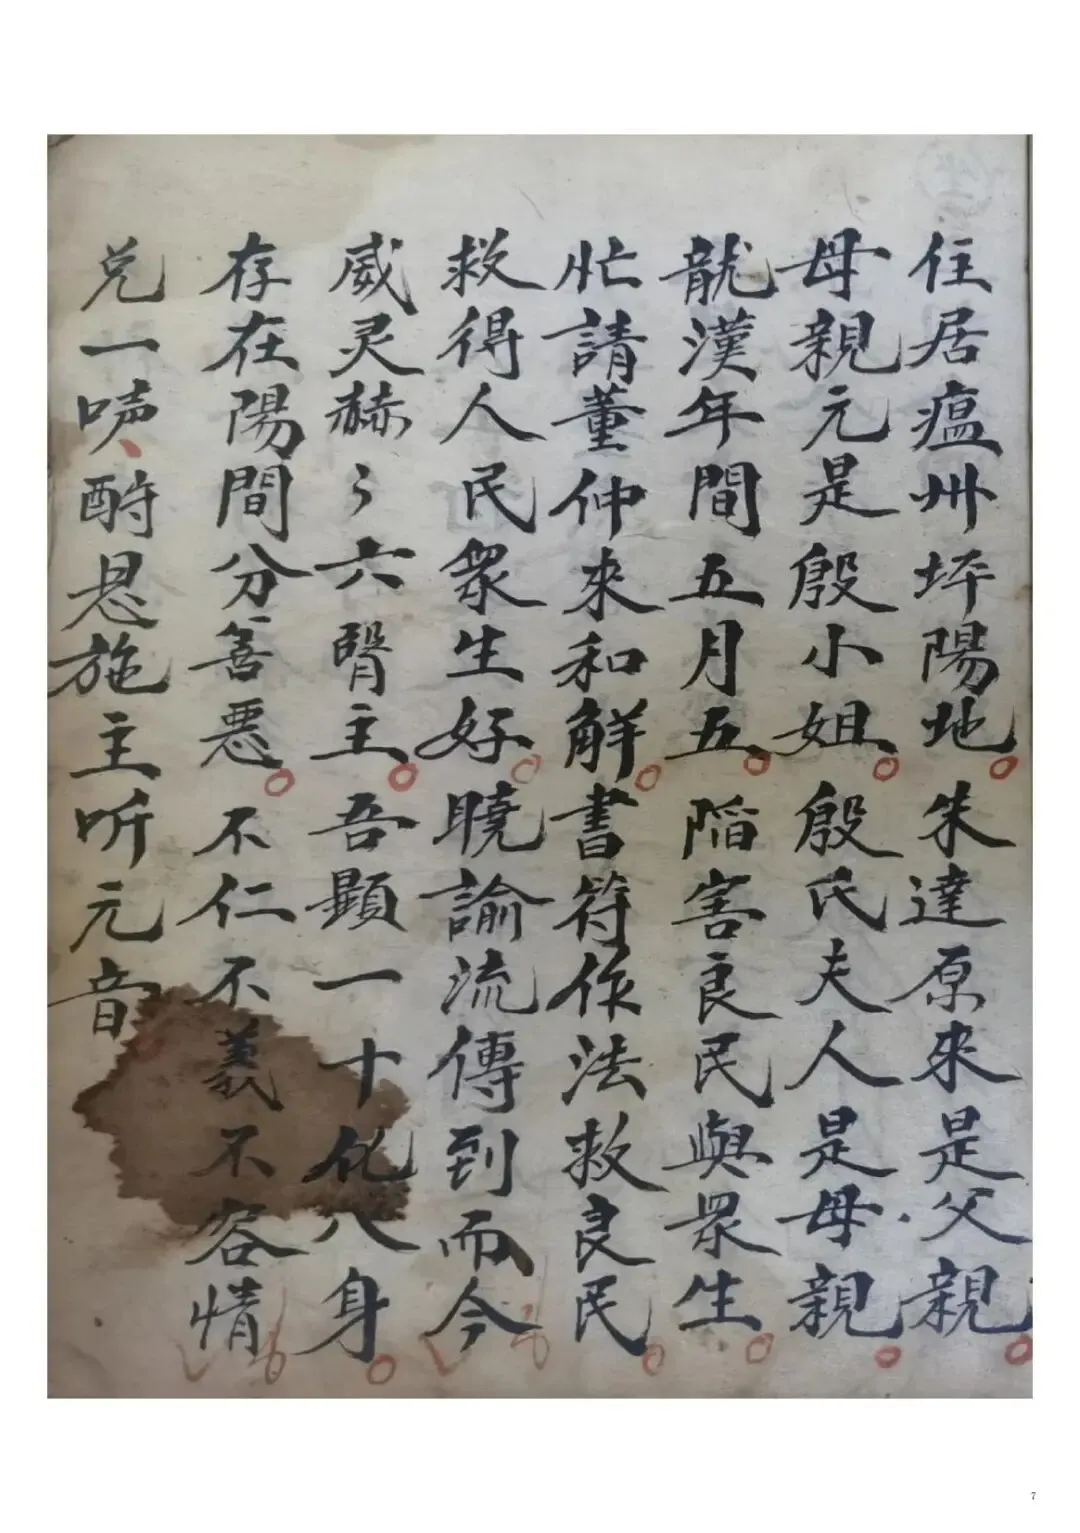 住居瘟州坪陽地朱達原來是父親
母親元是殷小姐殷氏夫人是母親
龍漢年間五月五陷害良民與眾生
忙請董仲來和解書符作法救良民
救得人民眾生好曉諭流傳到而今
威灵赫々六醫主吾顯一十化八身
存在陽間分善惡不仁不義不容情
兑一唠酧恩施主听元音
7